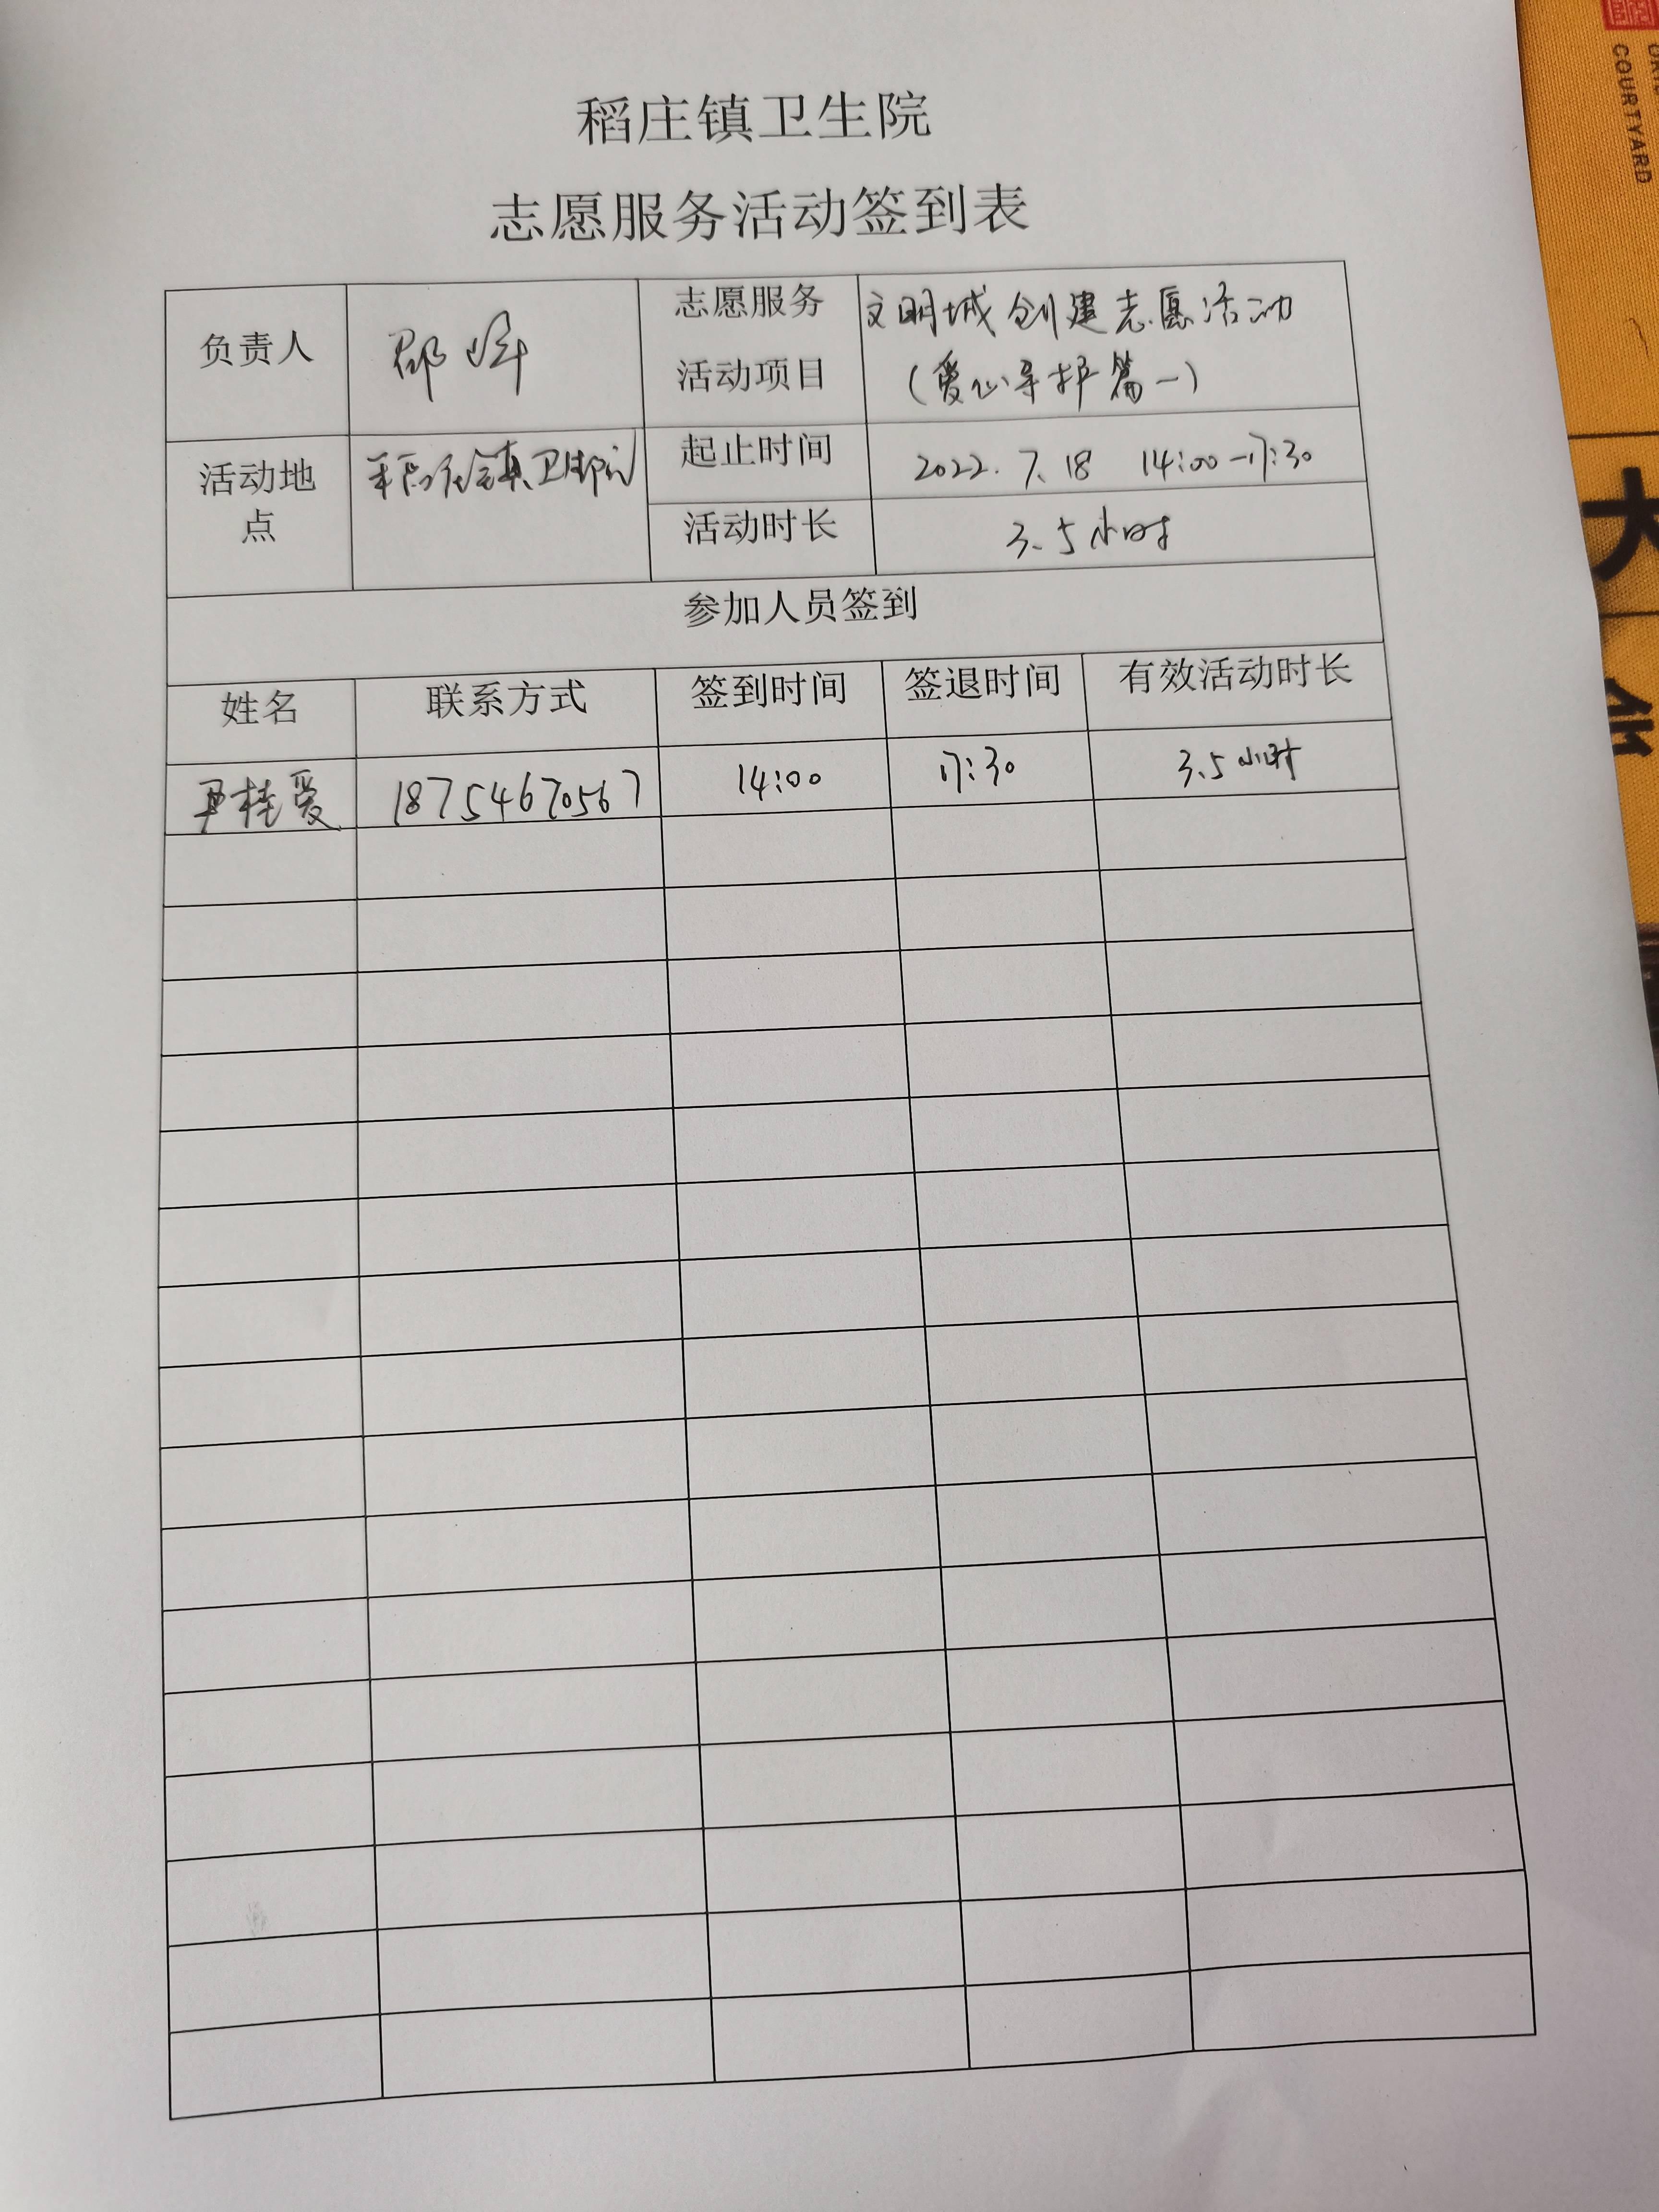 稻庄镇卫生院
志愿服务活动签到表
负责人
志愿服务
活动项目
文明城创建志愿活动
(爱心导护篇一)
活动地
点
起止时间
2022.7.18 14:00-17:30
活动时长
3.5小时
参加人员签到
姓名 联系方式 签到时间 签退时间 有效活动时长
桂爱 18754670567 14:00 17:30 3.5小时
COURTYARD
大